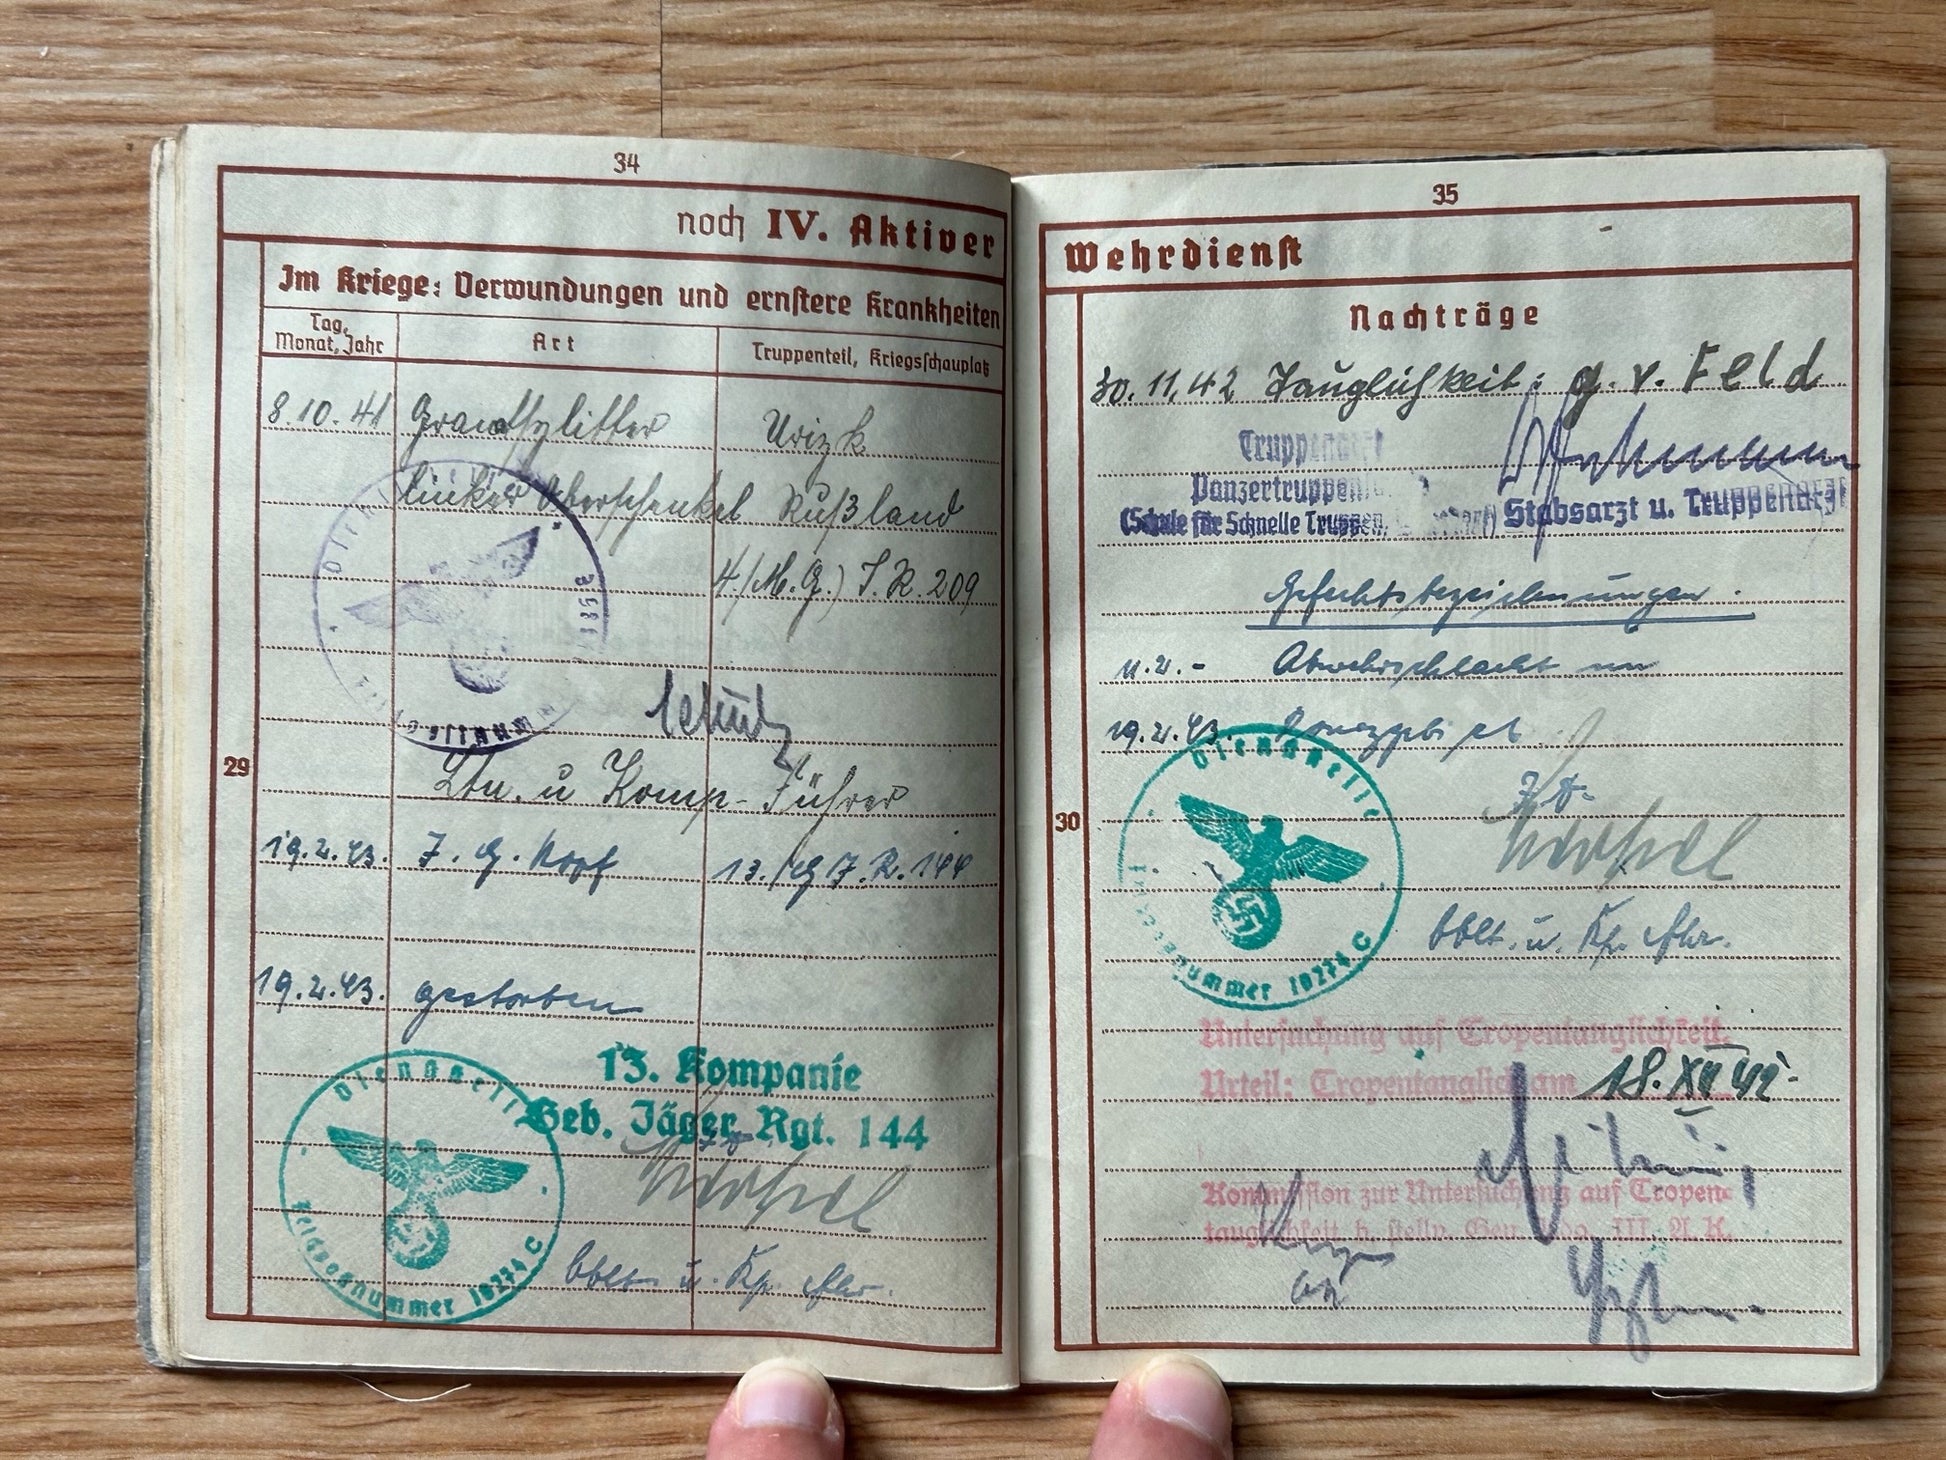 34
noch IV. Aktiver
Im Kriege: Verwundungen und ernstere Krankheiten
Tag, Monat, Jahr
Art
Truppenteil, Kriegsschauplatz
29
8.10.41 Granatsplitter
linker Oberschenkel Rußland
4./(M.G.) I.R. 209
Ltn. u Komp-Führer
19.2.43. I. G. Kopf 13./G J. R. 144
19.2.43. gestorben
13. Kompanie
Geb. Jäger Rgt. 144
Dienststelle
Feldpostnummer 10274 C
Oblt. u. Kp. Fhr.
35
Wehrdienst
Nachträge
30
30.11.42 Tauglichkeit: g. v. Feld
Truppenarzt
Panzertruppen
(Schule für Schnelle Truppen, Stabsarzt u. Truppenarzt
Gefechtsbezeichnungen.
Abwehrschlacht im
19.2.43. Donezgebiet
Dienststelle
Feldpostnummer 10274 C
Oblt. u. Kp. Fhr.
Untersuchung auf Tropentauglichkeit.
Urteil: Tropentauglich am 18. XII 42.
Kommission zur Untersuchung auf Tropen-
tauglichkeit b. stellv. Gen. Kdo. III. A. K.